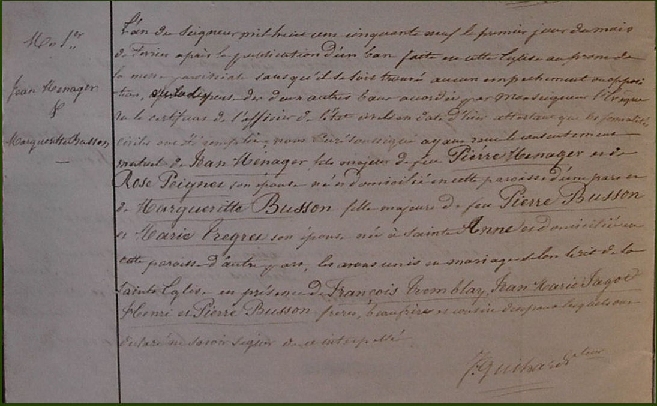 M. 1er
Jean Henager
&
Margueritte Busson
L'an du Seigneur mil huit cent cinquante neuf le premier jour du mois
de Février après la publication d'un ban faite en cette Eglise au prone de
la messe paroissiale sans qu'il se soit trouvé aucun empêchement ou opposi
tion, dispense des deux autres bans accordée par Monseigneur l'Evêque
vu le certificat de l'officier de l'état civil en date d'hier attestant que les formalités
civiles ont été remplies, nous curé soussigné ayant reçu le consentement
mutuel de Jean Henager fils majeur de feu Pierre Henager et de
Rose Peignee son épouse né et domicilié en cette paroisse d'une part et
de Margueritte Busson fille majeure de feu Pierre Busson
et Marie son épouse née à Sainte Anne et domiciliée en
cette paroisse d'autre part, les avons unis en mariage selon le rit de la
Sainte Eglise en présence de François Tremblay, Jean Marie Jagot
Henri et Pierre Busson frère, beaufrère et cousin des époux lesquels ont
déclaré ne savoir signer de ce interpellé